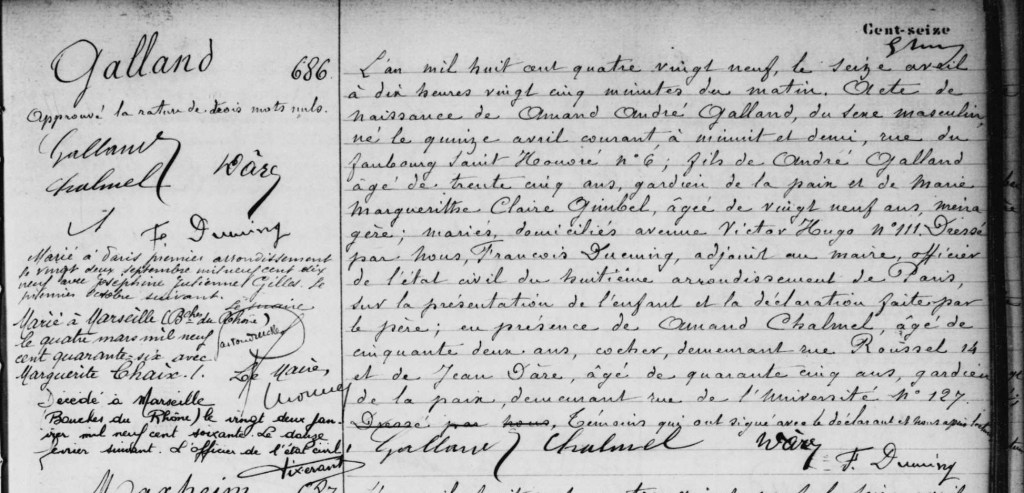 Cent-seize
Galland
686
Approuvé la rature de trois mots nuls.
Galland
Chalmel Dàre
F. Dueuing
Marié à Paris premier arrondissement
le vingt deux septembre mil neuf cent dix
neuf avec Joséphine Julienne Gilles. Le
premier octobre suivant.
Marié à Marseille (B.ches du Rhône)
le quatre mars mil neuf
cent quarante-six avec
Marguerite Chaix.
Le Maire,
Décédé à Marseille
(Bouches du Rhône) le vingt deux jan-
vier mil neuf cent soixante. Le douze
février suivant. L'officier de l'état civil,
L'an mil huit cent quatre vingt neuf, le seize avril
à dix heures vingt cinq minutes du matin. Acte de
naissance de Amand André Galland, du sexe masculin,
né le quinze avril courant, à minuit et demi, rue du
faubourg Saint Honoré n° 6; fils de André Galland
âgé de trente cinq ans, gardien de la paix et de Marie
Margueritthe Claire Gimbel, âgée de vingt neuf ans, ména
gère; mariés, domiciliés avenue Victor Hugo n° 111. Dressé
par nous, François Dueuing, adjoint au maire, officier
de l'état civil du huitième arrondissement de Paris,
sur la présentation de l'enfant et la déclaration faite par
le père; en présence de Amand Chalmel, âgé de
cinquante deux ans, cocher, demeurant rue Roussel 14
et de Jean Dàre, âgé de quarante cinq ans, gardien
de la paix, demeurant rue de l'Université n° 127.
Dressé par nous, Témoins qui ont signé avec le déclarant et nous après lecture
Galland Chalmel Dàre
F. Dueuing
Maxheim